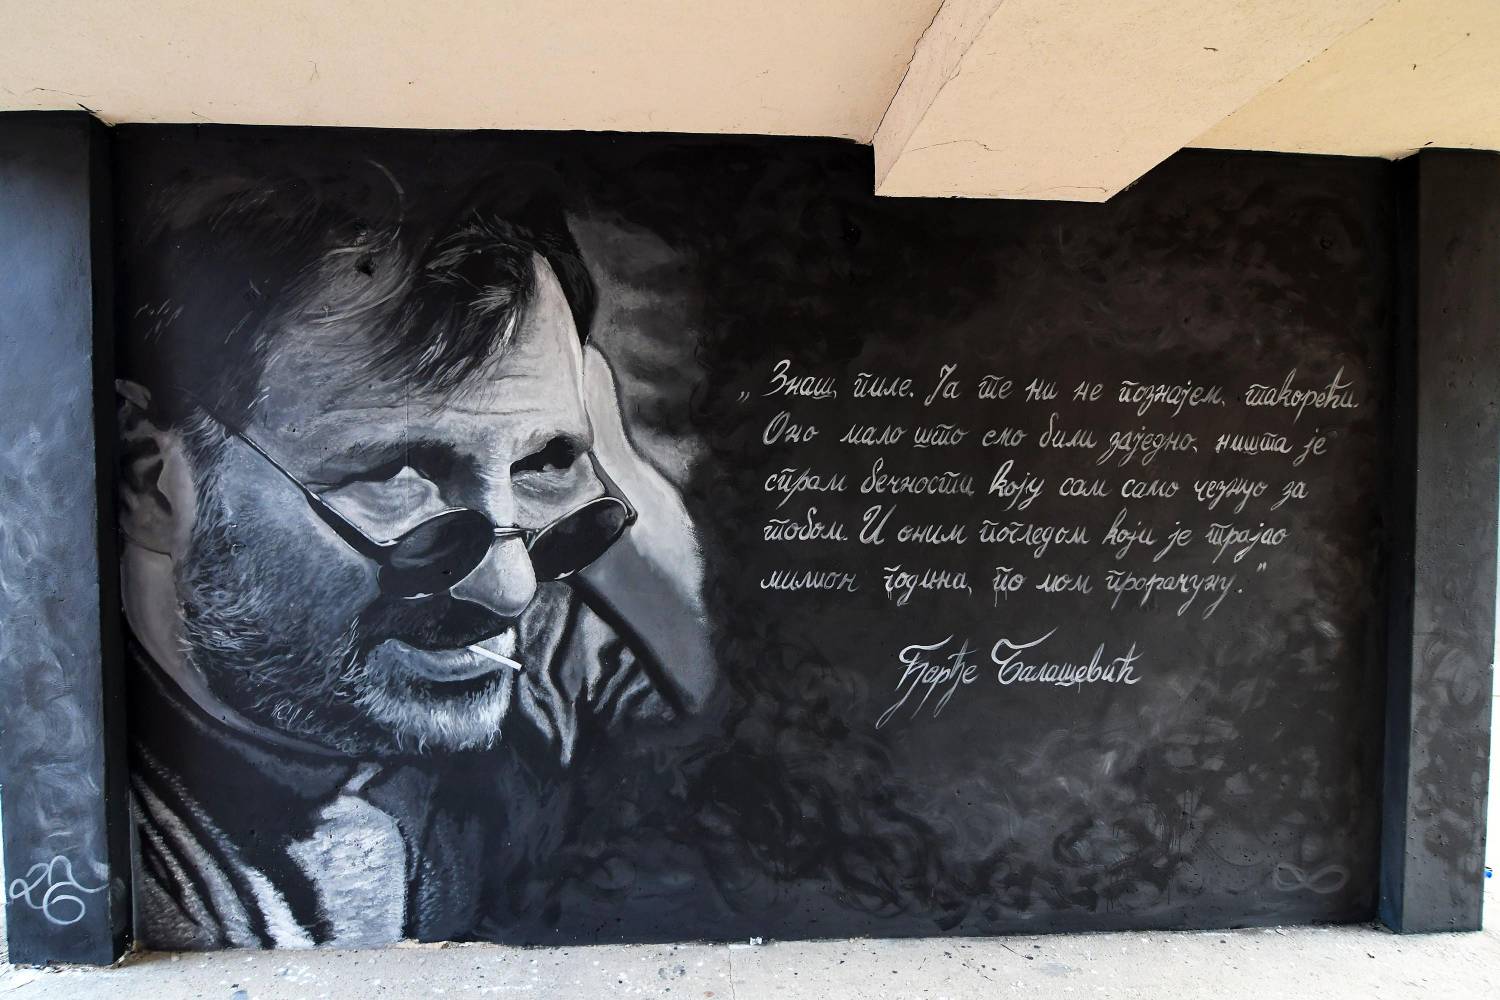 „Знаш, пиле. Ја те ни не познајем, такорећи.
Оно мало што смо били заједно, ништа је
спрам вечности коју сам само чезнуо за
тобом. И оним погледом који је трајао
милион година, по мом прорачуну.”
Ђорђе Балашевић